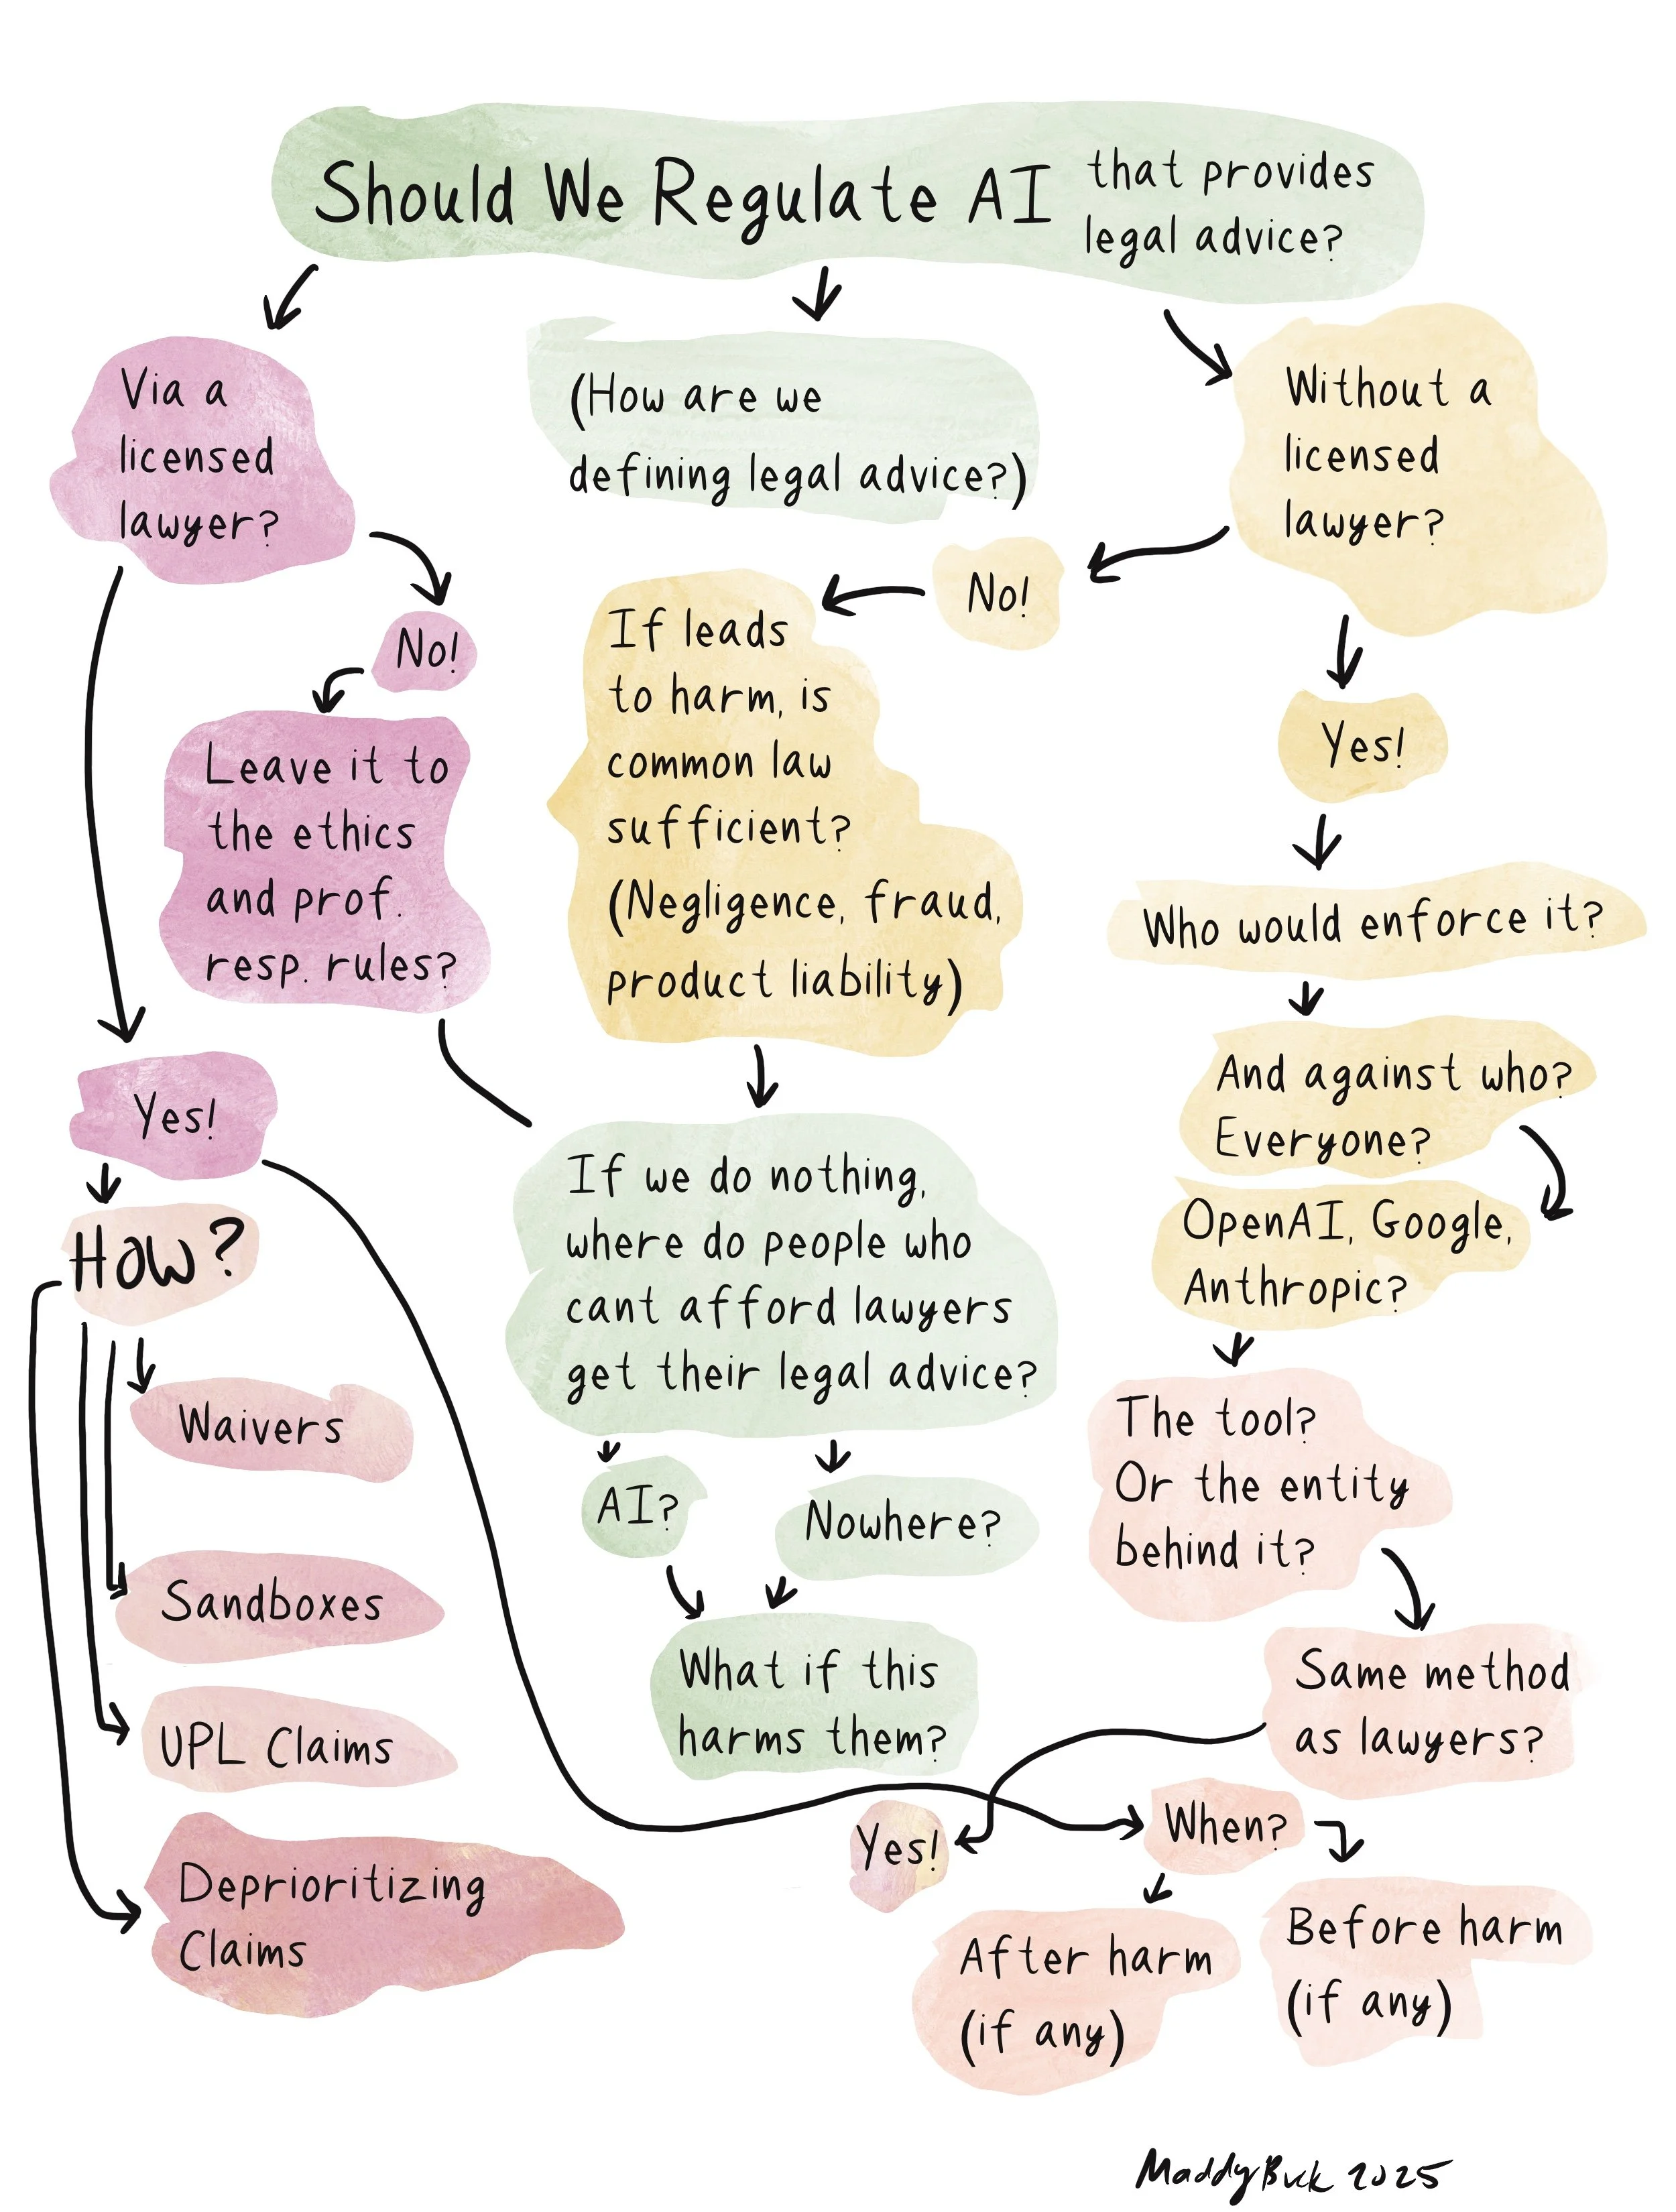 Should We Regulate AI that provides
legal advice?
Via a
licensed
lawyer?
(How are we
defining legal advice?)
Without a
licensed
lawyer?
No!
Leave it to
the ethics
and prof.
resp. rules?
No!
If leads
to harm, is
common law
sufficient?
(Negligence, fraud,
product liability)
Yes!
Who would enforce it?
And against who?
Everyone?
OpenAI, Google,
Anthropic?
The tool?
Or the entity
behind it?
Same method
as lawyers?
Yes!
When?
After harm
(if any)
Before harm
(if any)
If we do nothing,
where do people who
cant afford lawyers
get their legal advice?
AI?
Nowhere?
What if this
harms them?
Yes!
How?
Waivers
Sandboxes
UPL Claims
Deprioritizing
Claims
MaddyBuck 2025